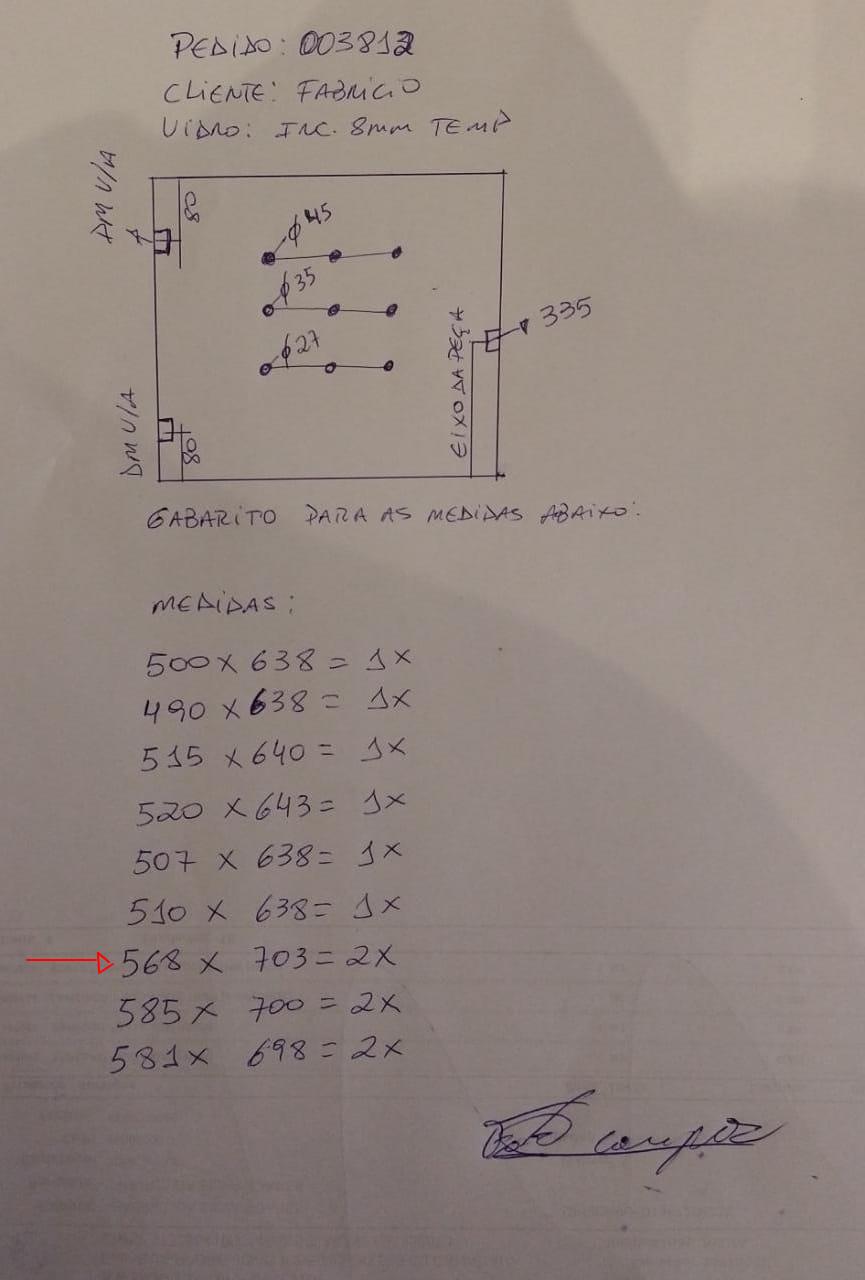 PEDIDO: 003812
CLIENTE: FABRICIO
VIDRO: INC. 8mm TEMP
DM V/A
80
φ45
φ35
335
φ27
EIXO DA PEÇA
DM V/A
80
GABARITO PARA AS MEDIDAS ABAIXO:
MEDIDAS:
500 x 638 = 1x
490 x 638 = 1x
515 x 640 = 1x
520 x 643 = 1x
507 x 638 = 1x
510 x 638 = 1x
568 x 703 = 2x
585 x 700 = 2x
581 x 698 = 2x